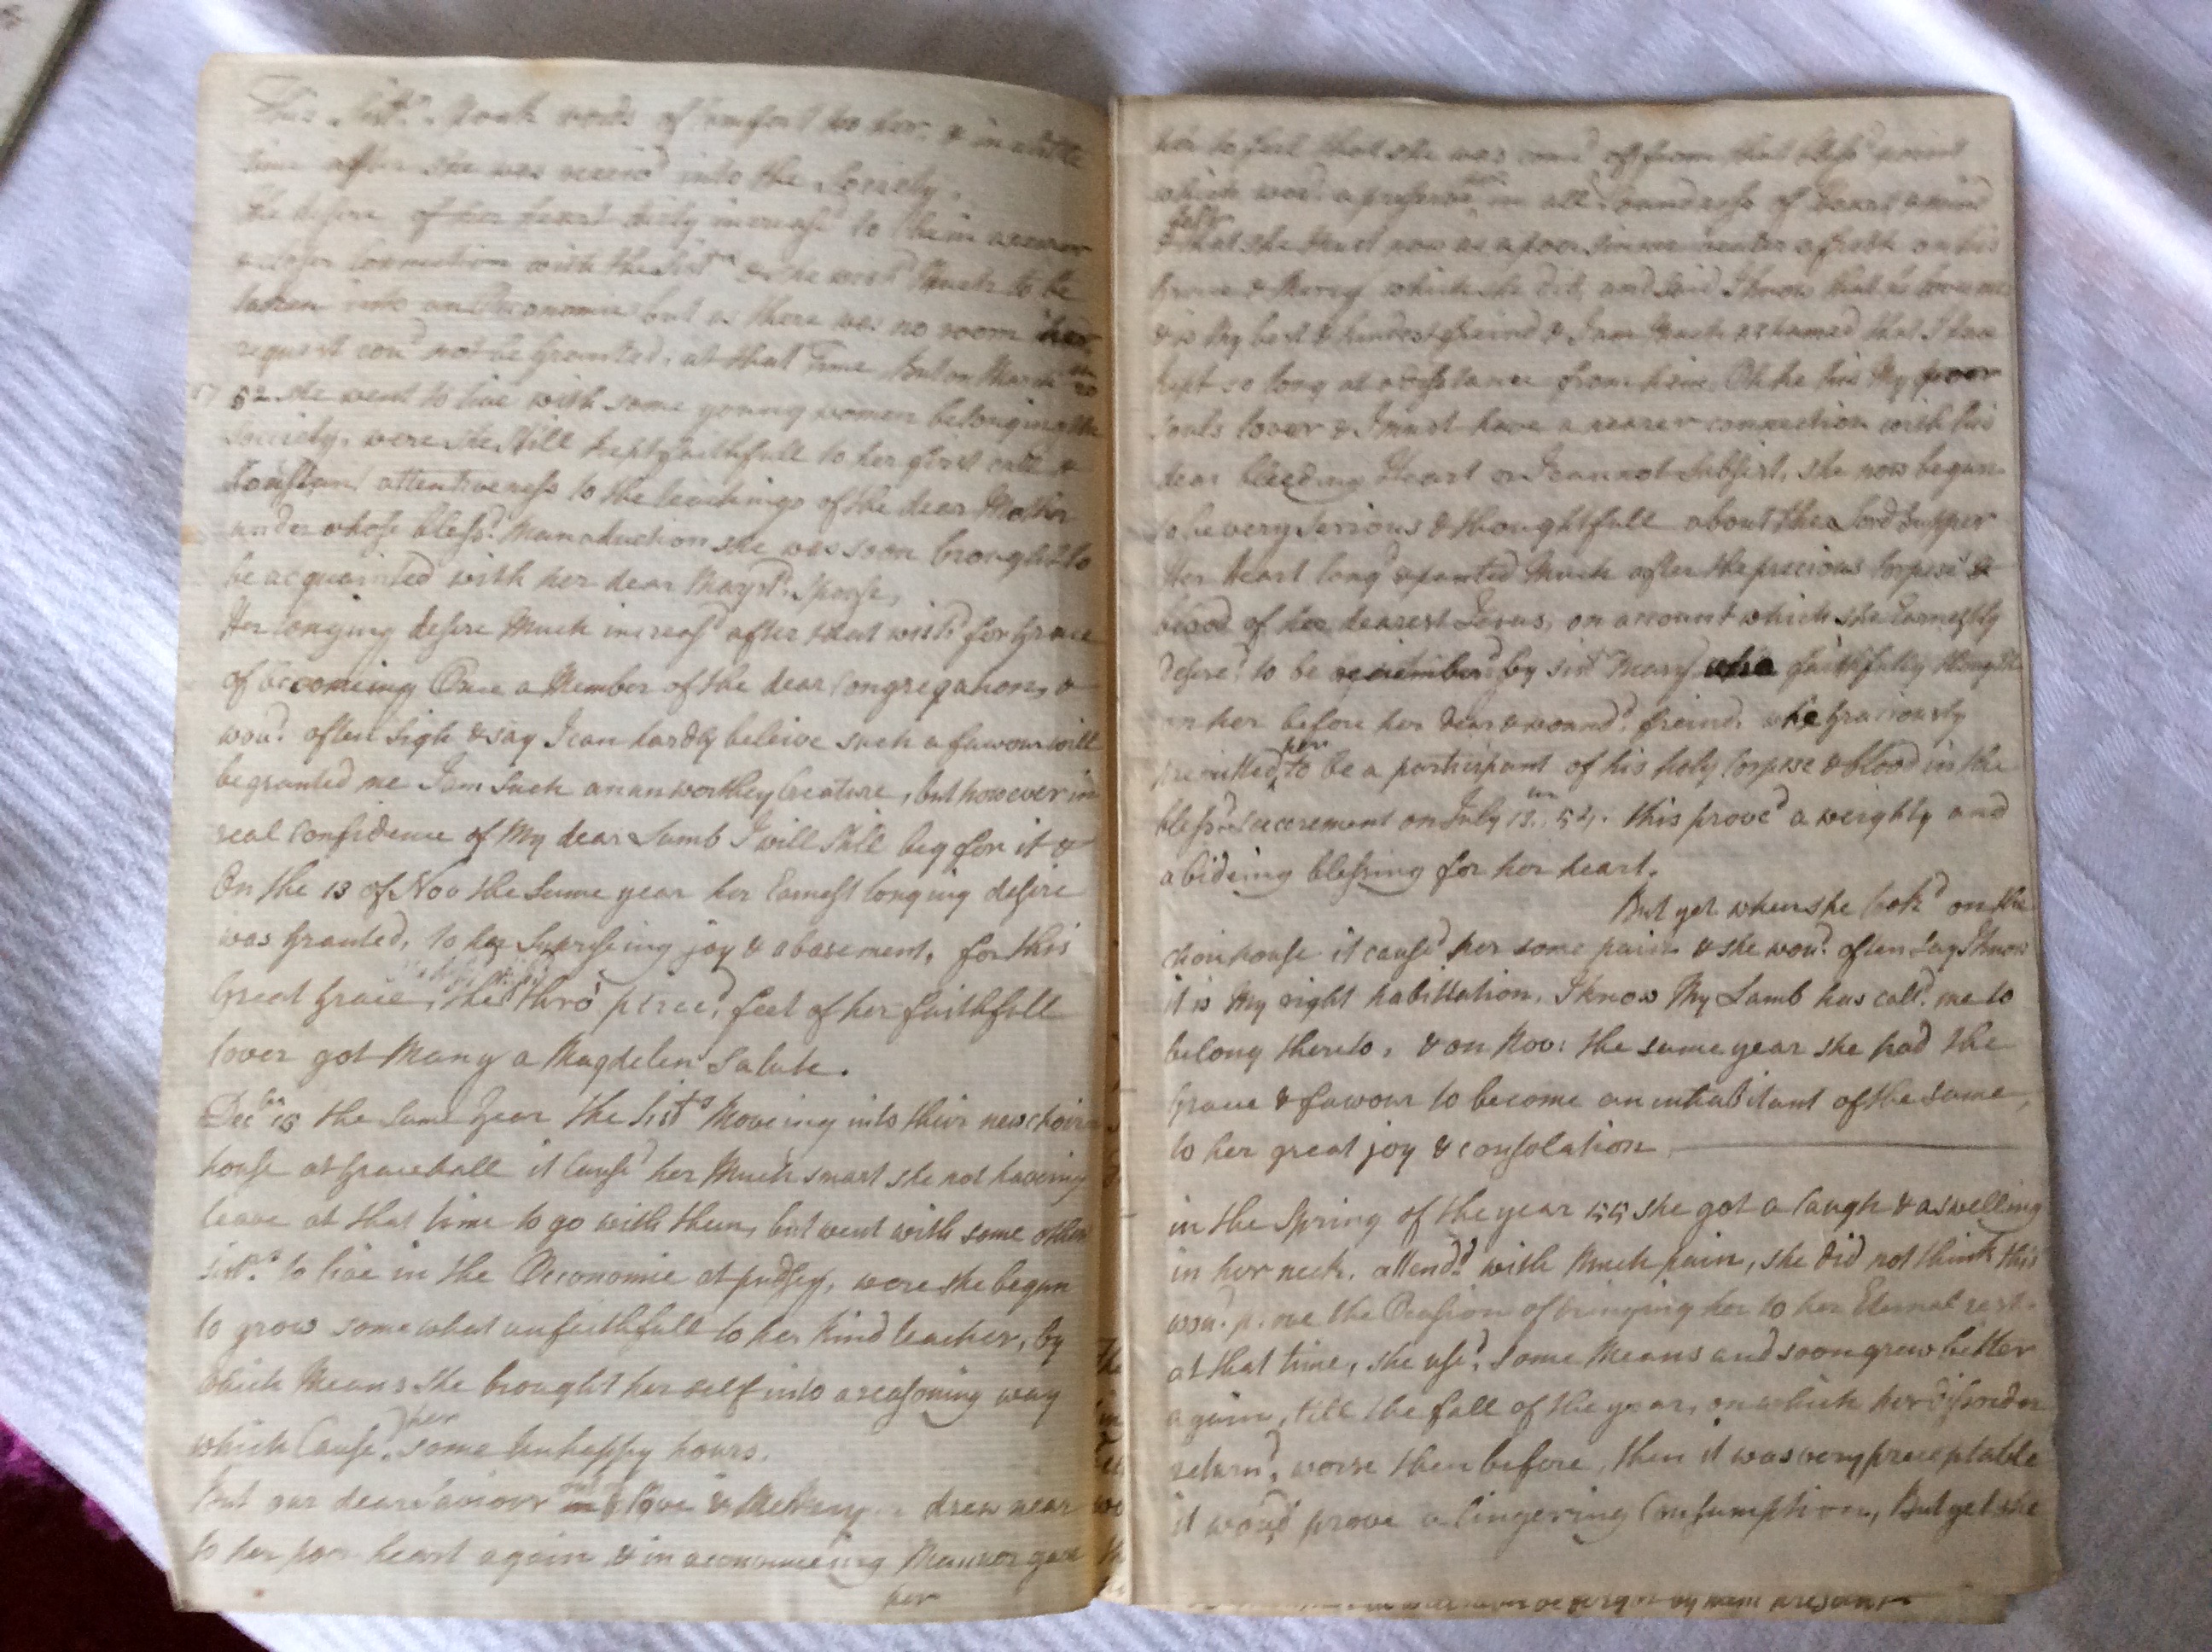 This Sist.r spoak words of comfort too her, & in a little
time after she was receiv'd into the Society.
the desire of her heart dirly increas'd to be in a nearer
& closer Connection with the Sist.rs & she wish'd Much to be
taken into an Oeconomie but as there was no room her
request cou'd not be Granted, at that Time But on March 20
1752 she went to live with some young women belonging the
Society, were she still kept faithfull to her first call &
Constant attentiveness to the teachings of the dear Mother
under whose bless'd Manaduction she was soon brought to
be acquainted with her dear Mart.d Spouse,
Her longing desire Much increas'd after that wish'd for Grace
of becomeing Once a Member of the dear Congregation, &
wou'd often sigh & say I can hardly beleive such a favour will
be granted me I am Such an unworthey Creature, but however in
real Confidence of My dear Lamb I will still beg for it &
On the 13 of Nov the Same year her Earnest longing desire
was Granted, to her Supriseing joy & abasement, for this
Great Grace, she thro' pirced, feet of her faithfull
lover got Many a Magdelen Salute.
Dec 13 the Same Year the Sist.rs Moveing into their new choir
house at Gracehall it Caus'd her Much smart she not haveing
leave at that time to go with them, but went with some other
sist.rs to live in the Oeconomie at pudsey, were she began
to grow somewhat unfaithfull to her Kind teacher, by
which Means she brought her self into a reasoning way
which Caus'd her some Unhappy hours.
But our dear Saviour in love & Merhcy drew near
to her poor heart again & in a conveinceing Manner gave
her
her to feel that she was come'd off from that bless'd point
which wou'd a preserved in all Soundness of heart & mind
& that she Must now as a poor sinner venter afresh on his
Grace & Mercy which she did, and said I know that he loves me
& is My best & kindest freind & I am Much ashamed that I have
kept so long at a distance from him, Oh he his My poor
Souls lover & I must have a nearer connection with his
dear bleeding Heart or I cannot Subsist, she now began
to be very serious & thoughtfull about the Lord Supper
Her Heart long'd & panted Much after the precious Corpse &
blood of her dearest Jesus, on account which she Earnestly
desire'd to be remember'd by sist.r Mary who faithfully thought
on her before her dear & wound'd freind, whe Graciously
premitted her to be a participant of his holy Corpse & blood in the
bless'd Sacerement on July 13th 54. this prove'd a weighty and
abideing blessing for her heart.
But yet when she look'd on the
choir house it cause'd her some pain & she wou'd often say I know
it is My right habittation, I know My Lamb has call'd me to
belong thereto, & on Nov: the same year she had the
Grace & favour to become an inhabitant of the same,
to her great joy & consolation
in the Spring of the year 55 she got a Caugh & a swelling
in her neck, attend'd with Much pain, she did not think this
wou'd prove the Ocasion of bringing her to her Eternal rest.
at that time, she use'd some Means and soon grew better
again, till the fall of the year, on which her disorder
return'd, worse then before, then it was very preceptable
it wou'd prove a lingering Consumption, But yet she